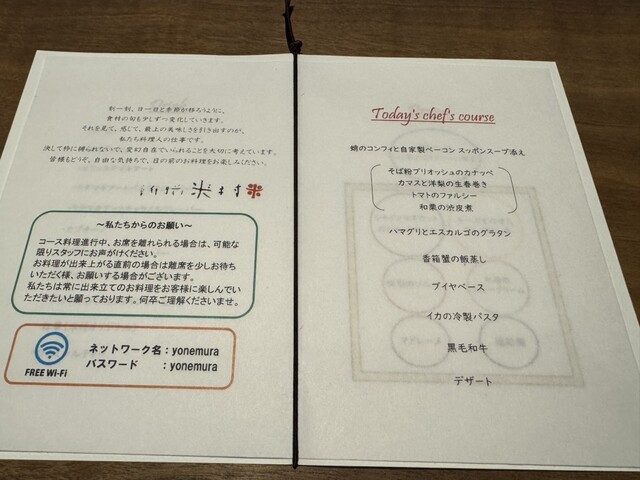 刻一刻、日一日と季節が移ろうように、
食材の旬も少しずつ変化していきます。
それを見て、感じて、最上の美味しさを引き出すのが、
私たち料理人の仕事です。
決して枠に縛られないで、変幻自在でいられることを大切に考えています。
皆様もどうぞ、自由な気持ちで、目の前のお料理をお楽しみください。
米村
～私たちからのお願い～
コース料理進行中、お席を離れられる場合は、可能な
限りスタッフにお声がけください。
お料理が出来上がる直前の場合は離席を少しお待ち
いただく様、お願いする場合がございます。
私たちは常に出来立てのお料理をお客様に楽しんでい
ただきたいと願っております。何卒ご理解くださいませ。
FREE Wi-Fi
ネットワーク名：yonemura
パスワード　：yonemura
Today's chef's course
鮪のコンフィと自家製ベーコン スッポンスープ添え
そば粉ブリオッシュのカナッペ
カマスと洋梨の生春巻き
トマトのファルシー
和栗の渋皮煮
ハマグリとエスカルゴのグラタン
香箱蟹の飯蒸し
ブイヤベース
イカの冷製パスタ
黒毛和牛
デザート